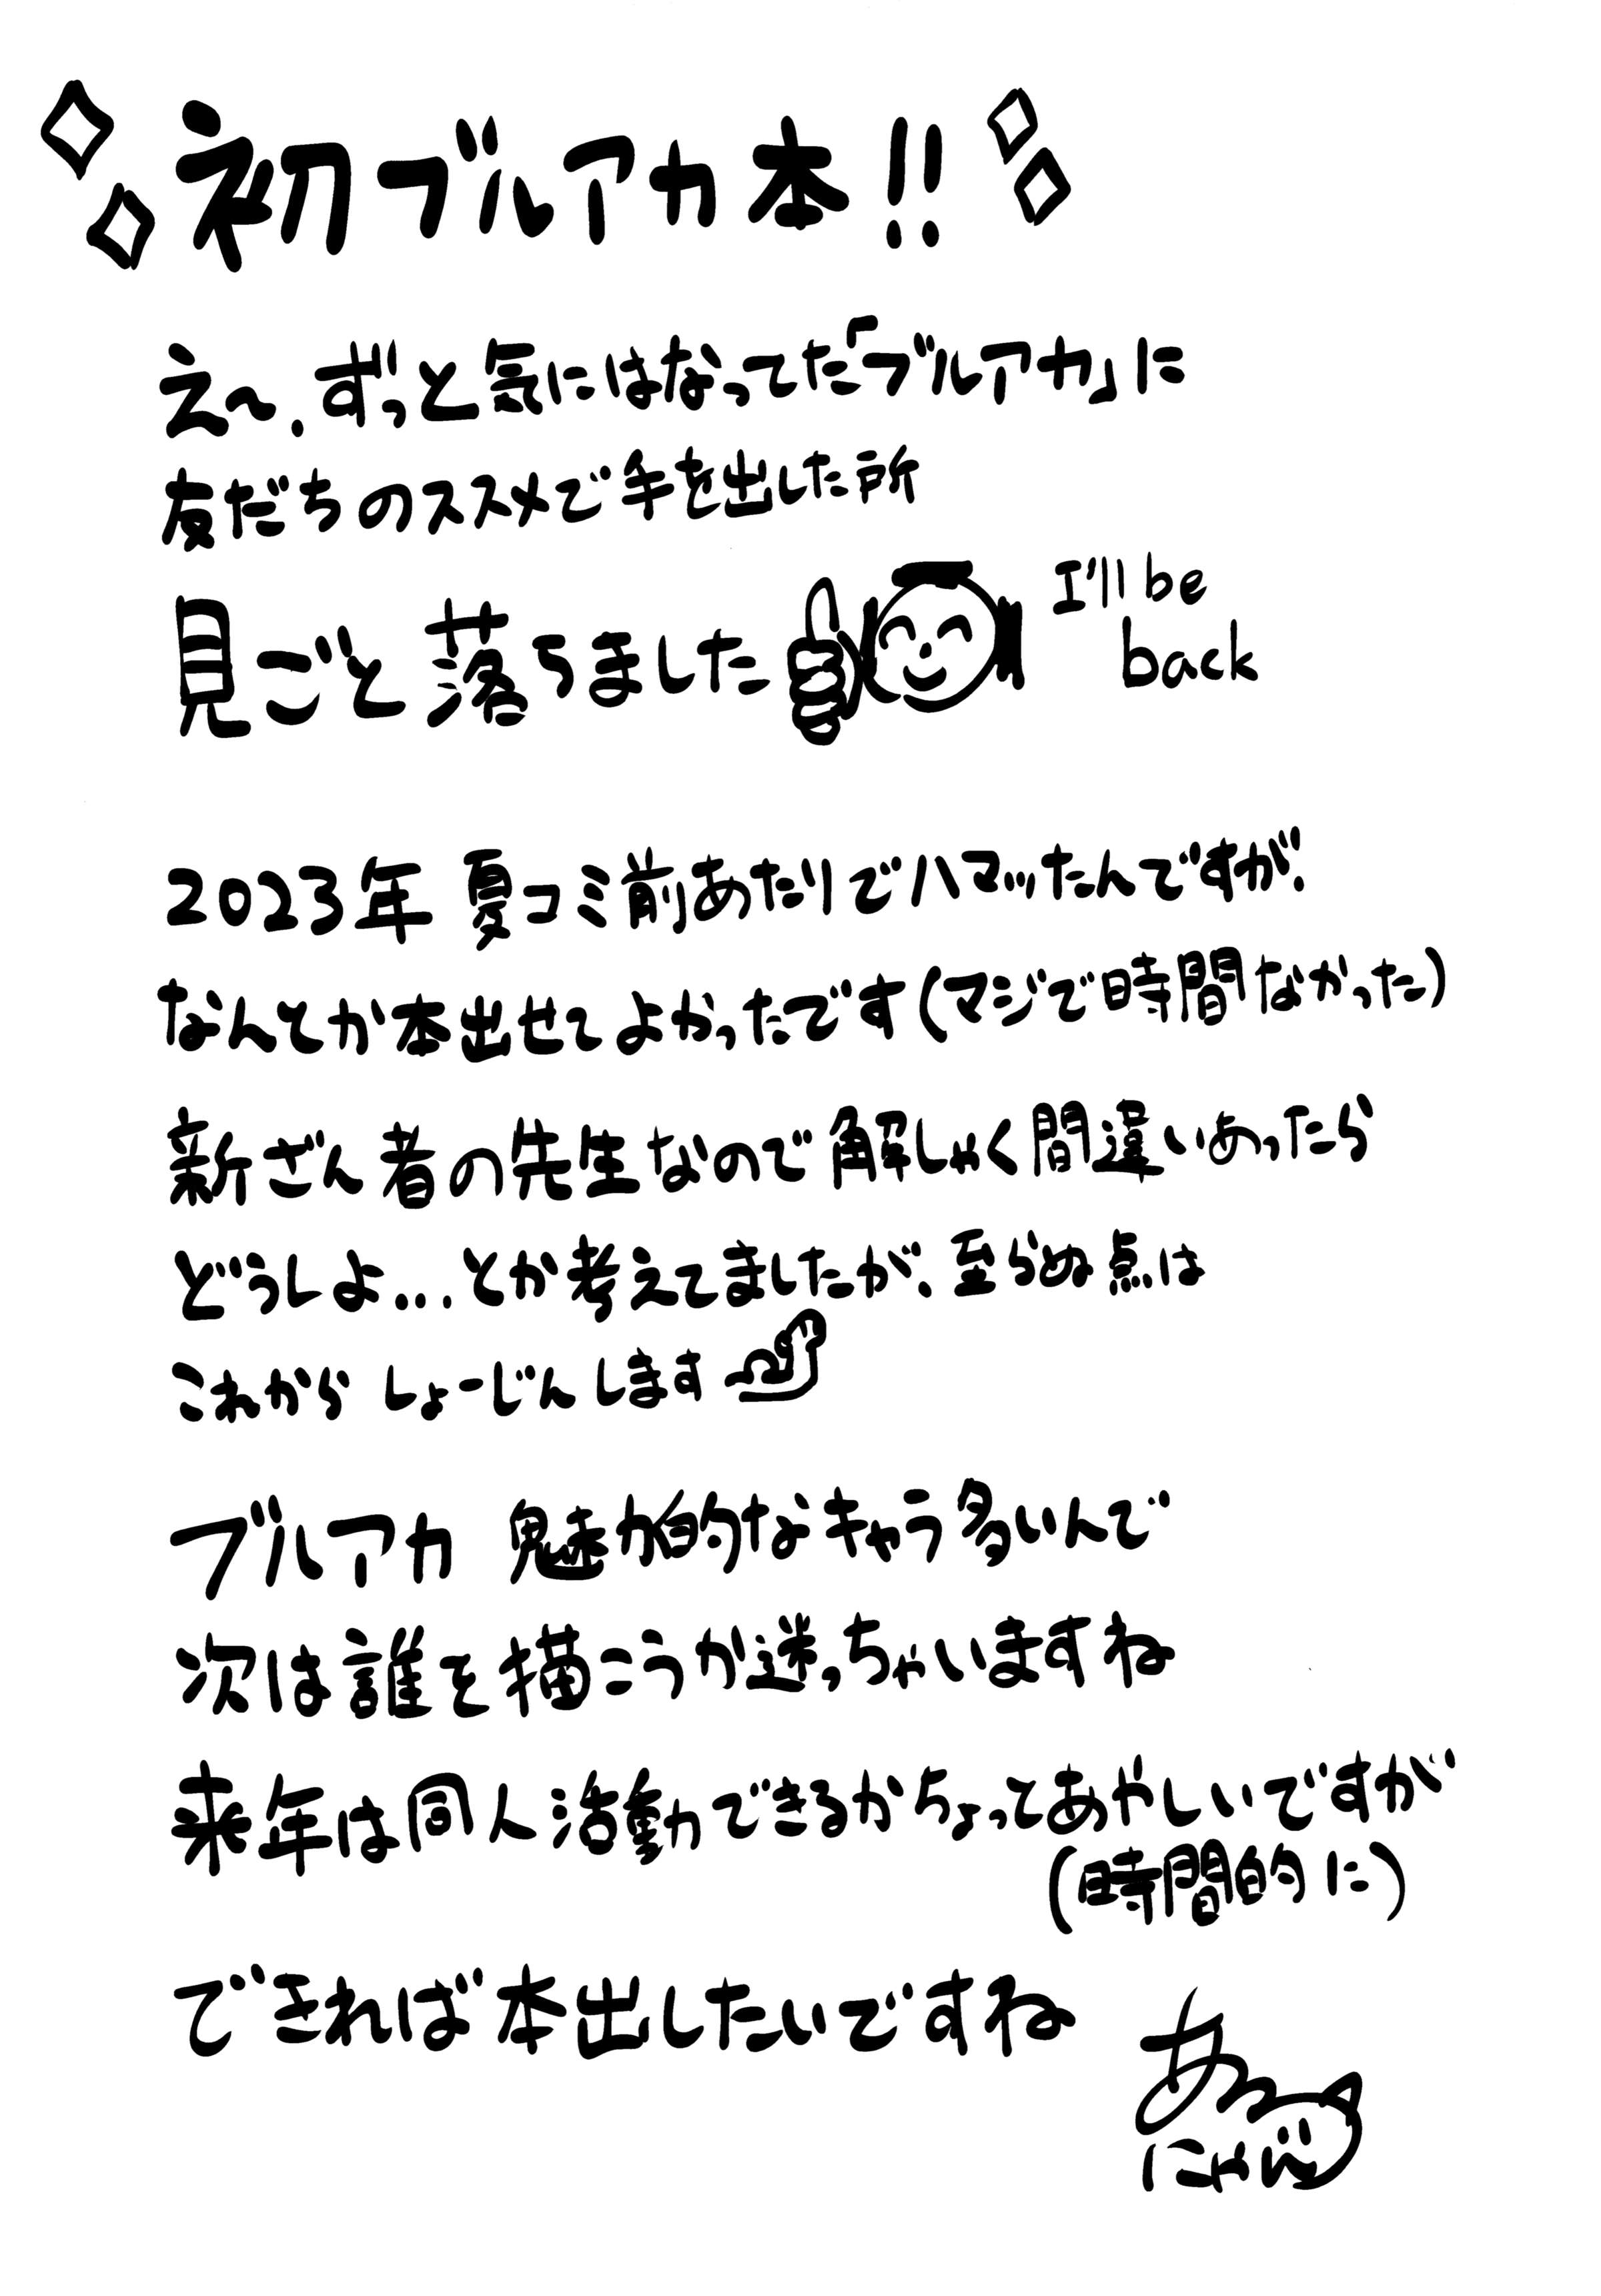 初ブルアカ本!!
え〜、ずっと気にはなってた「ブルアカ」に
友だちのススメで手を出した所
見ごと落ちました
I'll be
back
2023年 夏コミ前あたりでハマッたんですが、
なんとか本出せてよかったです(マジで時間なかった)
新ざん者の先生なので解しゃく間違いあったら
どうしよ...とか考えてましたが、至らぬ点は
これから しょーじんします
ブルアカ 魅力的なキャラ多いんで
次は誰を描こうか迷っちゃいますね
来年は同人活動できるかちょってあやしいですが
(時間的に)
できれば本出したいですね